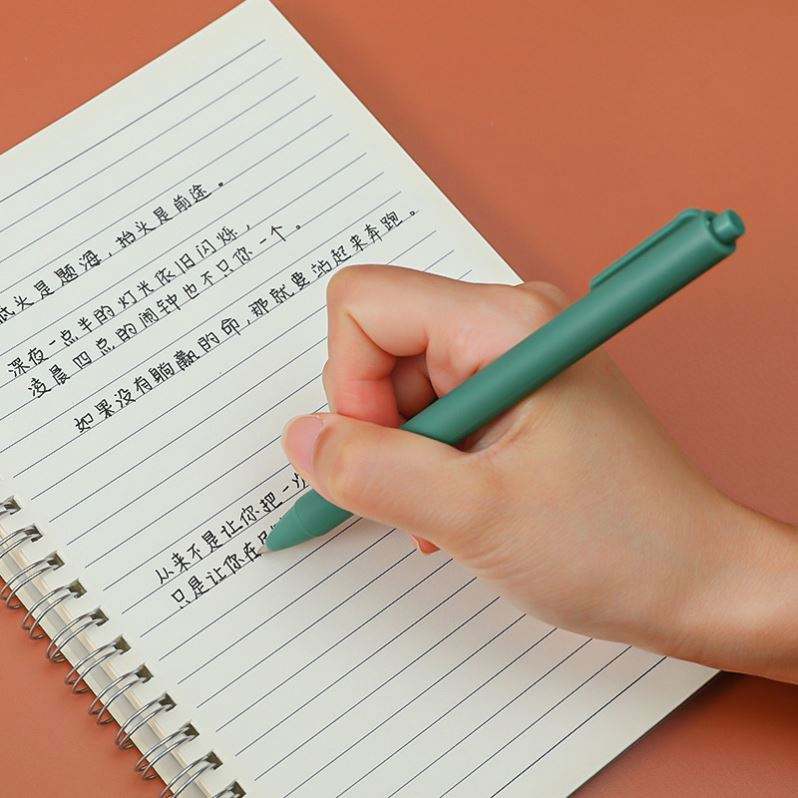 低头是题海,抬头是前途。
深夜一点半的灯光依旧闪烁,
凌晨四点的闹钟也不只你一个。
如果没有躺赢的命,那就要站起来奔跑。
从来不是让你把一次
只是让你在